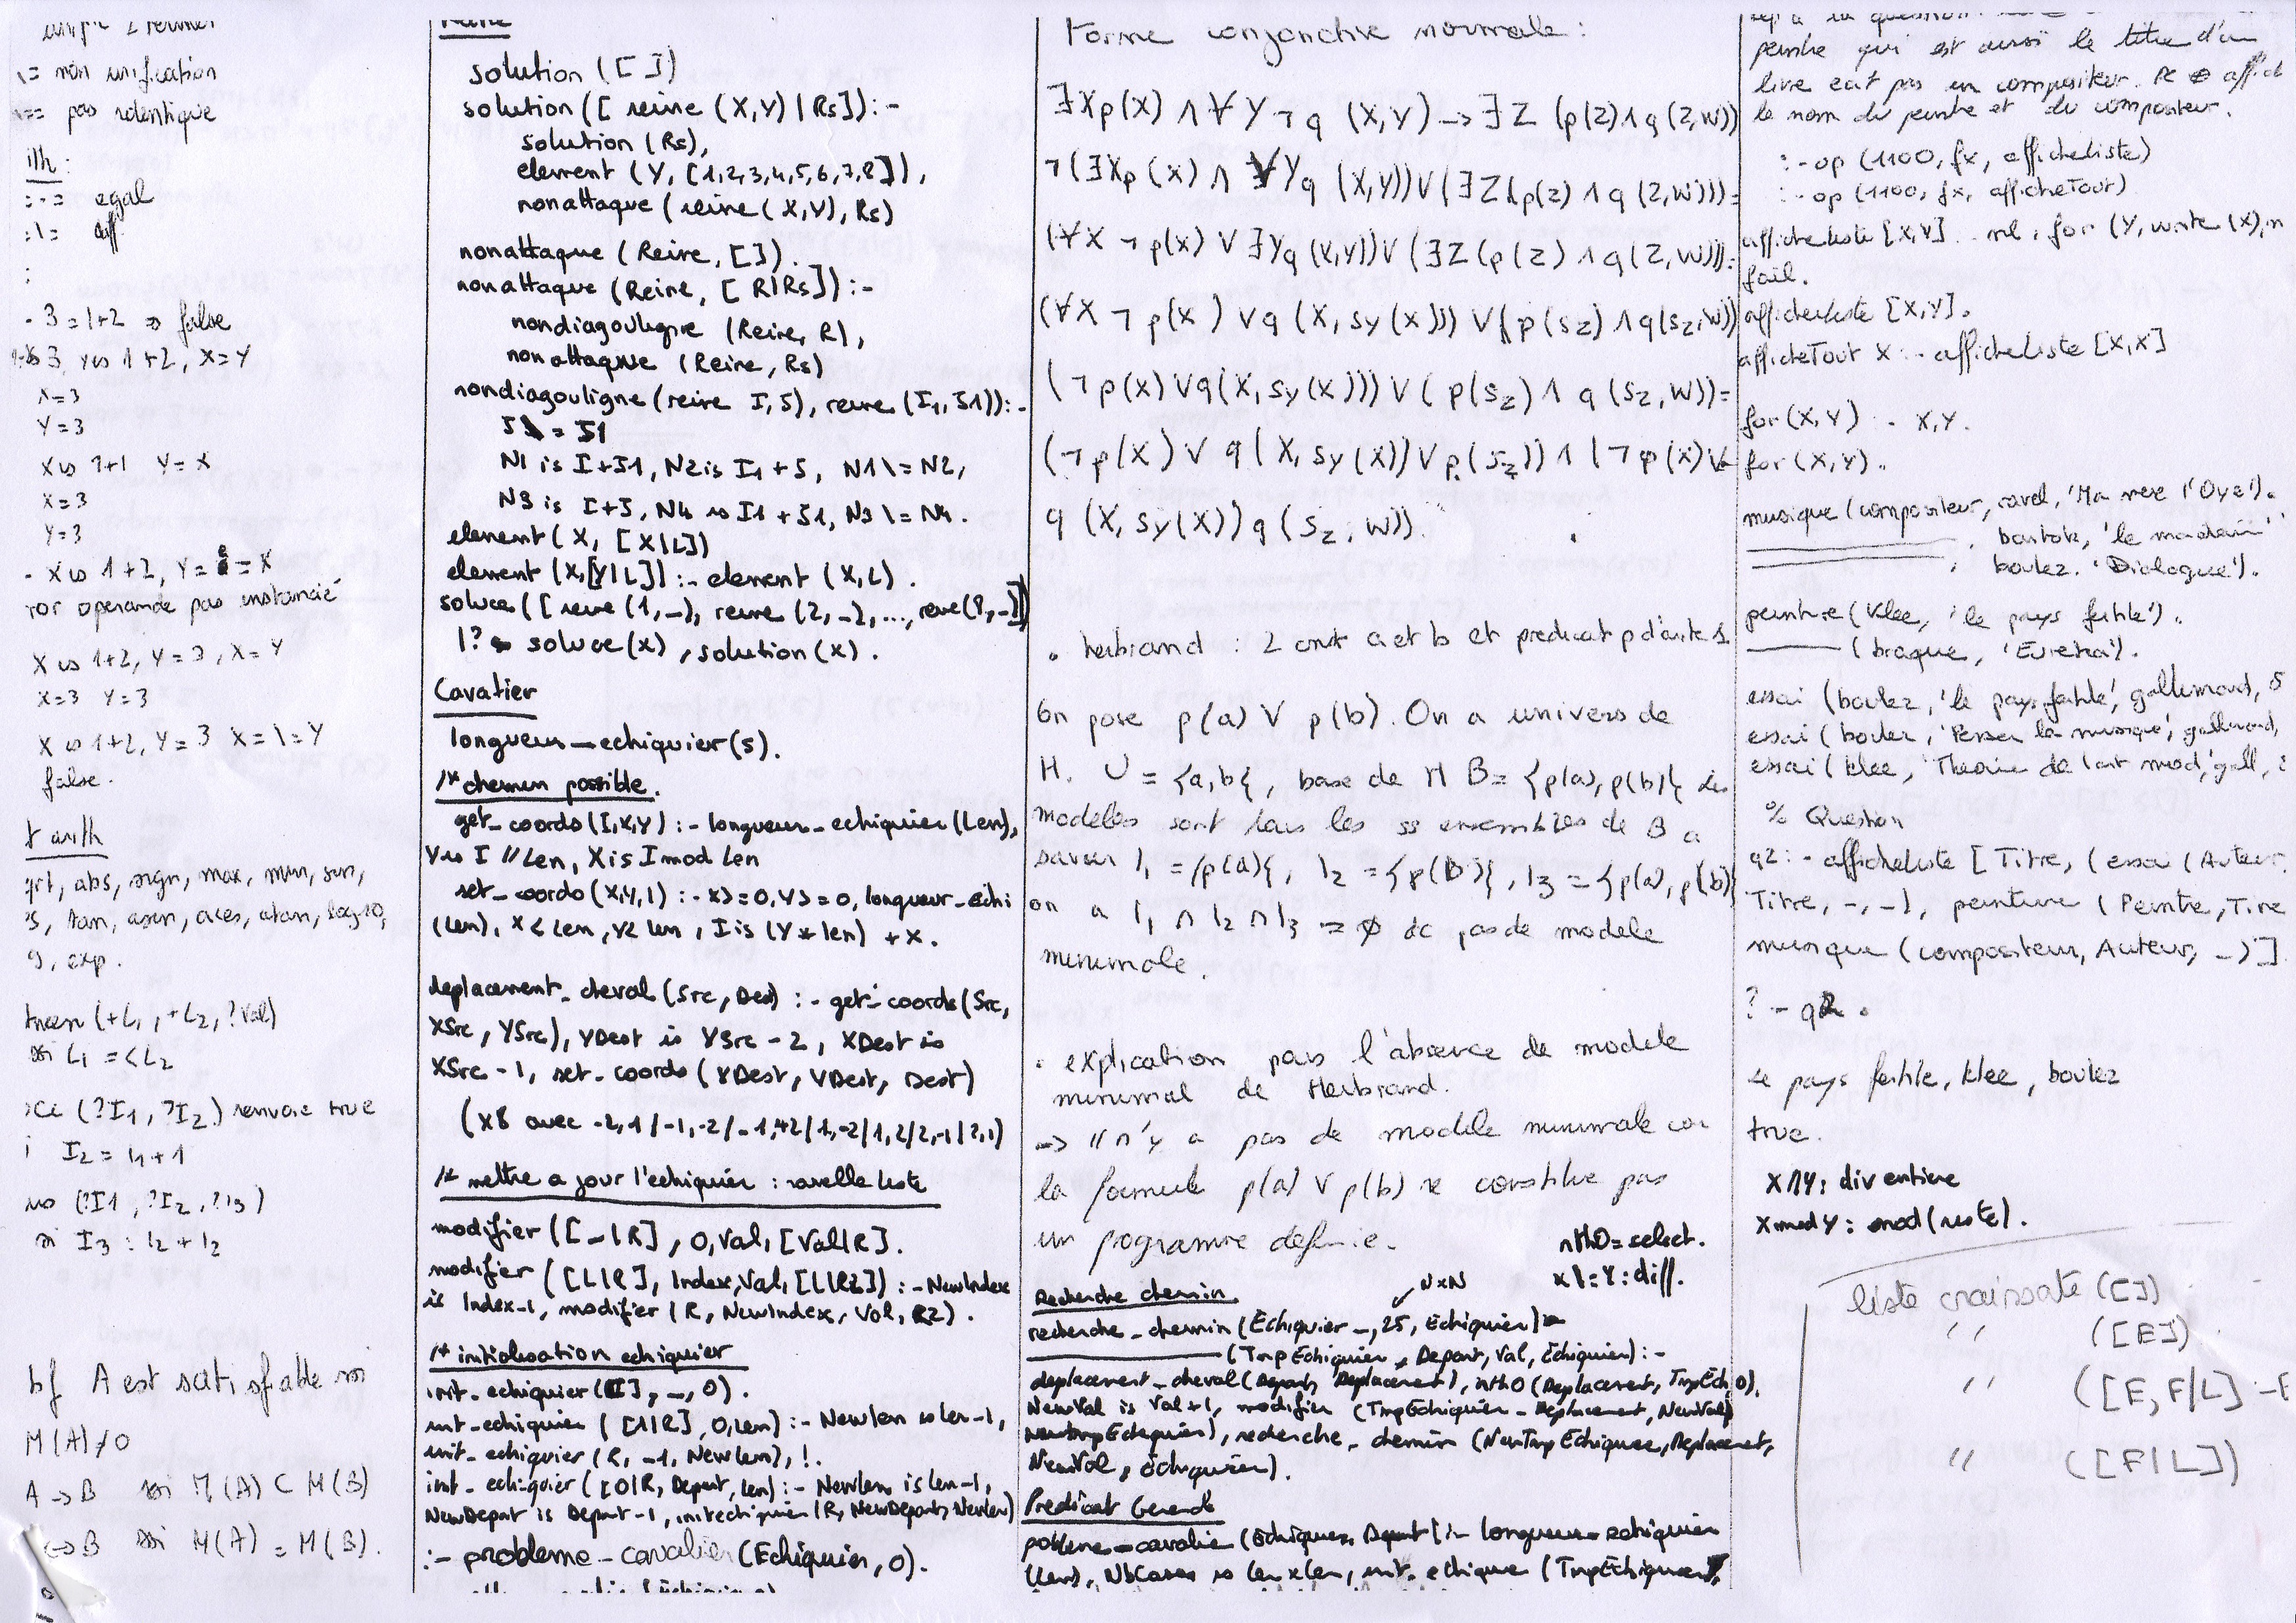 \= non unification
\== pas identique
=:= egal
. 3 = 1+2 => false
X is 3, Y is 1+2, X=Y
X=3
Y=3
X is 1+1 Y = X
X=3
Y=3
. X is 1+2, Y = = X
operande pas instancié
X is 1+2, Y = 3, X = Y
X=3 Y=3
X is 1+2, Y = 3 X =\= Y
false.
f arith
abs, sign, max, min, sin,
tan, asin, acos, atan, log10,
exp.
(+L1, +L2, ?Val)
ssi L1 =< L2
(?I1, ?I2) renvoie true
I2 = I1 + 1
(?I1, ?I2, ?I3)
si I3 : I2 + I2
bf A est satisfiable ssi
M(A) ≠ 0
A -> B ssi M(A) ⊂ M(B)
<-> B ssi M(A) = M(B).
Reine
solution ([])
solution ([ reine (X,Y) | Rs]) :-
solution (Rs),
element (Y, [1,2,3,4,5,6,7,8]),
nonattaque (reine (X,Y), Rs)
nonattaque (Reine, []).
nonattaque (Reine, [R|Rs]) :-
nondiagouligne (Reine, R),
nonattaque (Reine, Rs)
nondiagouligne (reine I, J), reine (I1, J1)) :-
J \= J1
N1 is I+J1, N2 is I1 + J, N1 \= N2,
N3 is I+J, N4 is I1 + J1, N3 \= N4.
element (X, [X|L])
element (X,[Y|L]) :- element (X,L).
soluce ([ reine (1,_), reine (2,_), ..., reine(8,_)])
|? soluce(x), solution (x).
Cavalier
longueur_echiquier(5).
/* chemin possible.
get_coords (I,X,Y) :- longueur_echiquier (Len),
Y is I // Len, X is I mod Len
set_coords (X,Y,I) :- X>=0, Y>=0, longueur_echi
(Len), X < Len, Y< Len, I is (Y * Len) + X.
deplacement_cheval (Src, Des) :- get_coords (Src,
XSrc, YSrc), YDest is YSrc - 2, XDest is
XSrc - 1, set_coords (XDest, YDest, Dest)
(x8 avec -2,1 / -1,-2 / -1,+2 / 1,-2 / 1,2 / 2,-1 / 2,1)
/* mettre a jour l'echiquier : nouvelle liste
modifier ([_|R], 0, Val, [Val|R].
modifier ([L|R], Index, Val, [L|R2]) :- NewIndex
is Index-1, modifier (R, NewIndex, Val, R2).
/* initialisation echiquier
init_echiquier ([], _, 0).
init_echiquier ([1|R], 0, Len) :- Newlen is len-1,
init_echiquier (R, -1, Newlen), !.
init_echiquier ([0|R, Depart, Len) :- Newlen is len-1,
NewDepart is Depart-1, initechiquier (R, NewDepart, Newlen)
:- probleme_cavalier (Echiquier, 0).
Forme conjonctive normale :
∃X p(X) ∧ ∀Y ¬q (X,Y) -> ∃Z (p(Z) ∧ q(Z,W))
¬(∃X p(X) ∧ ∀Y q (X,Y)) ∨ (∃Z (p(Z) ∧ q(Z,W))) =
(∀X ¬p(X) ∨ ∃Y q (X,Y)) ∨ (∃Z (p(Z) ∧ q(Z,W))) =
(∀X ¬p(X) ∨ q (X, Sy(X))) ∨ (p(Sz) ∧ q(Sz,W))
(¬p(X) ∨ q(X, Sy(X))) ∨ (p(Sz) ∧ q (Sz,W)) =
(¬p(X) ∨ q (X, Sy(X)) ∨ p(Sz)) ∧ (¬p(X) ∨
q (X, Sy(X)) q (Sz, W)).
. herbrand : 2 cnst a et b et predicat p d'arité 1.
On pose p(a) ∨ p(b). On a univers de
H. U = {a,b}, base de H B = {p(a), p(b)} les
modeles sont tous les ss ensembles de B a
savoir I1 = {p(a)}, I2 = {p(B)}, I3 = {p(a), p(b)}
on a I1 ∩ I2 ∩ I3 = ∅ dc pas de modele
minimale.
. explication pour l'absence de modele
minimal de Herbrand.
-> Il n'y a pas de modele minimale car
la formule p(a) ∨ p(b) ne constitue pas
un programme definie.
nth0 = select.
x \= Y : diff.
Recherche chemin.
NxN
recherche_chemin (Echiquier _, 25, Echiquier)
(TmpEchiquier, Depart, Val, Echiquier) :-
deplacement_cheval (Depart, Deplacement), nth0 (Deplacement, TmpEch, 0),
NewVal is Val+1, modifier (TmpEchiquier, Deplacement, NewVal,
NewTmpEchiquier), recherche_chemin (NewTmpEchiquier, Deplacement,
NewVal, Echiquier).
Predicat General
probleme_cavalier (Echiquier, Depart) :- longueur_echiquier
(Len), NbCases is len x len, init_echiquier (TmpEchiquier,
peintre qui est aussi le titre d'un
livre ecit pas un compositeur.
le nom du peintre et du compositeur.
:-op (1100, fx, afficheliste)
:-op (1100, fx, afficheTout)
afficheliste [X,Y] :- nl, for (Y, write (X), n
fail.
afficheliste [X,Y].
afficheTout X :- afficheliste [X,X]
for (X,Y) :- X,Y.
for (X,Y).
musique (compositeur, ravel, 'Ma mere l'Oye').
, bartok, 'le mandarin'
, boulez, 'Dialogue').
peinture (Klee, 'le pays fertile').
(braque, 'Eureka').
essai (boulez, 'le pays fertile', gallimard, 5
essai (boulez, 'Penser la musique', gallimard,
essai (klee, 'Theorie de l'art mod', gall,
% Question
q2 :- afficheliste [ Titre, (essai (Auteur,
Titre, _, _), peinture (Peintre, Titre
musique (compositeur, Auteur, _)].
? - q2.
Le pays fertile, klee, boulez
true.
X // Y : div entiere
X mod Y : mod (reste).
liste croissate ([])
" ([E])
" ([E, F|L] :-
" ([F|L])